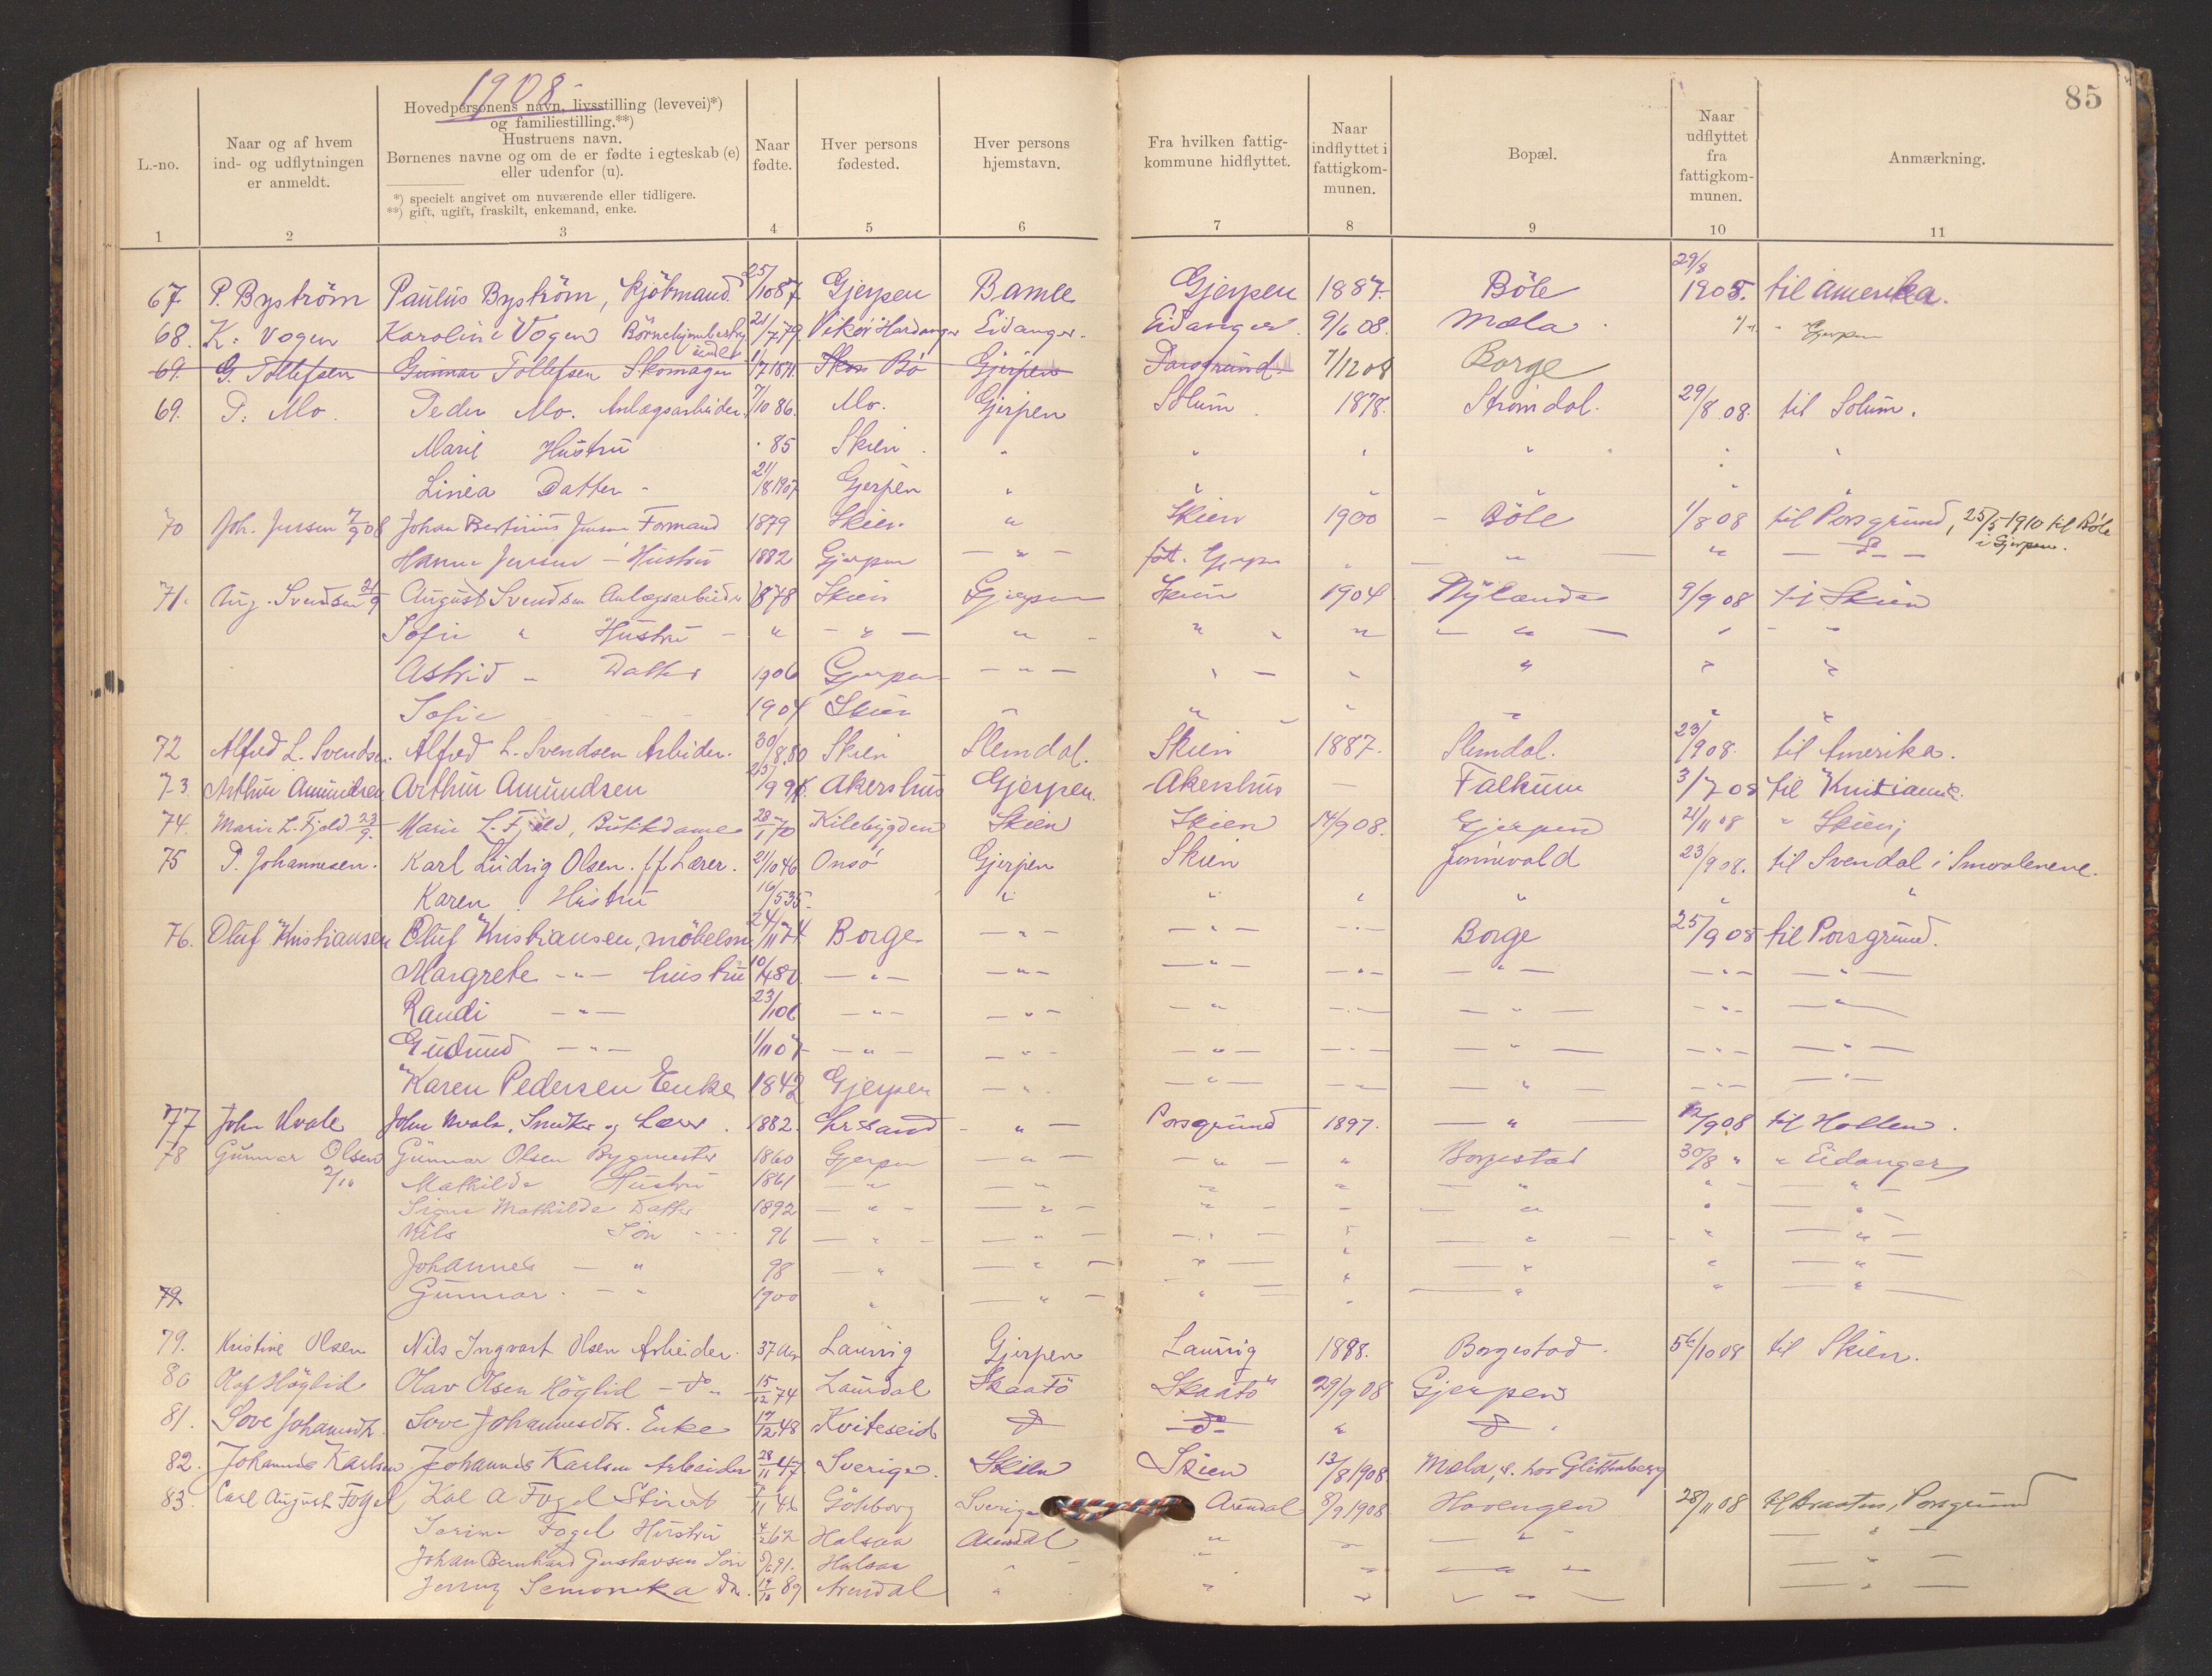 1908
85
L.-no.
Naar og af hvem ind- og udflytningen er anmeldt.
Hovedpersonens navn, livsstilling (levevei)*) og familiestilling.**)
Hustruens navn.
Børnenes navne og om de er fødte i egteskab (e) eller udenfor (u).
*) specielt angivet om nuværende eller tidligere.
**) gift, ugift, fraskilt, enkemand, enke.
Naar fødte.
Hver persons fødested.
Hver persons hjemstavn.
Fra hvilken fattigkommune hidflyttet.
Naar indflyttet i fattigkommunen.
Bopæl.
Naar udflyttet fra fattigkommunen.
Anmærkning.
1 2 3 4 5 6 7 8 9 10 11
67 P. Byström Paulus Byström, Kjöbmand 25/10 87 Gjerpen Bamle Gjerpen 1887. Böle 29/8 1908. til Amerika.
68. K. Vogen Karoline Vogen 21/7 79 Vikör Hardanger Eidanger. Eidanger. 9/6 08. Mæla Gjerpen
69. G. Tollefsen Gunnar Tollefsen Skomager 1/7 1871. Bö Gjerpen Porsgrund 7/12 08 Borge
69. P. Mo. Peder Mo. Anlægsarbeider. 7/10 86. Mo. Gjerpen Solum 1878. Strömdal. 29/8 08. til Solum.
Marie Hustru 85 Skien " " " " " "
Linea Datter 21/8 1907 Gjerpen " " " " " "
70 Joh. Jensen 7/9 08 Johan Bertinius Jensen Formand 1879 Skien " Skien 1900 Böle 1/8 08 til Porsgrund, 25/5 1910 til Böle i Gjerpen.
Hanna Jensen - Hustru 1882 Gjerpen " født. Gjerpen " " " do
71. Aug. Svendsen 21/9 August Svendsen Anlægsarbeider 1878 Skien Gjerpen Skien 1904 Nylænde 9/9 08 til Skien
Sofie " Hustru " " " " " " " "
Astrid " Datter 1906 Gjerpen " " " " " "
Sofie 1904 Skien " " " " " "
72 Alfred L. Svendsen. Alfred L. Svendsen Arbeider. 30/8 80 Skien Slemdal. Skien 1887. Slemdal. 23/9 08. til Amerika.
73 Arthur Amundsen Arthur Amundsen Akershus Gjerpen. Akershus — Falkum 3/7 08 til Kristiania.
74. Marie L. Fjeld 23/9. Marie L. Fjeld, Butikdame 28/1 70 Kilebygden Skien Skien 14/9 08. Gjerpen 21/11 08 " Skien,
75 P. Johannesen. Karl Ludvig Olsen. f.f. Lærer. 21/10 46 Onsö Gjerpen Skien 23/9 08. til Svendal i Smaalenene.
Karen Hustru 19/5 35. " " " " " "
76. Oluf Kristiansen Oluf Kristiansen, möbelsn. 24/11 74 Borge " " " Borge 25/9 08 til Porsgrund.
Margrete " hustru 10/4 80 " " " " " " "
Randi " 23/1 06 " " " " " " "
Gudrund " 1/11 07 " " " " " " "
Karen Pedersen Enke 1842 Gjerpen " " " " " "
77 John Kvale John Kvale, Snedker og Lærer. 1882. Chrsand " Porsgrund 1897. " 12/9 08 til Hollen.
78 Gunnar Olsen 2/10 Gunnar Olsen Bygmester 1860 Gjerpen " " " Borgestad 30/8 " " Eidanger
Mathilde Hustru 1861 " " " " " " "
Signe Mathilde Datter 1892 " " " " " " "
Nils Sön 96 " " " " " " "
Johannes " 98 " " " " " " "
Gunnar " 1900 " " " " " " "
79
79. Kristine Olsen Nils Ingvart Olsen Arbeider. 37 Aar Laurvig Gjerpen Laurvig 1898. Borgestad. til Skien.
80 Olaf Höglid Olav Olsen Höglid - do 15/12 74 Laurdal Skaatö Skaatö 29/9 08 Gjerpen
81. Sove Johannsdt. Sove Johannesdtr. Enke 17/12 48 Kviteseid do do " do
82. Johannes Karlsen Johannes Karlsen Arbeider 28/11 47 Sverige. Skien Skien 13/8 1908 Mæla, s. hos Glittenberg
83. Carl August Fogel Kal A Fogel Göteborg Sverige Arendal 8/9 1908 Hovengen 28/11 08 til Braaten, Porsgrund
Fogel Hustru 4/2 62 Arendal " " " "
Johan Bernhard Gustavsen Sön 91. " " " " "
Jenny Semonika Dtr. 89 Arendal " " " " "